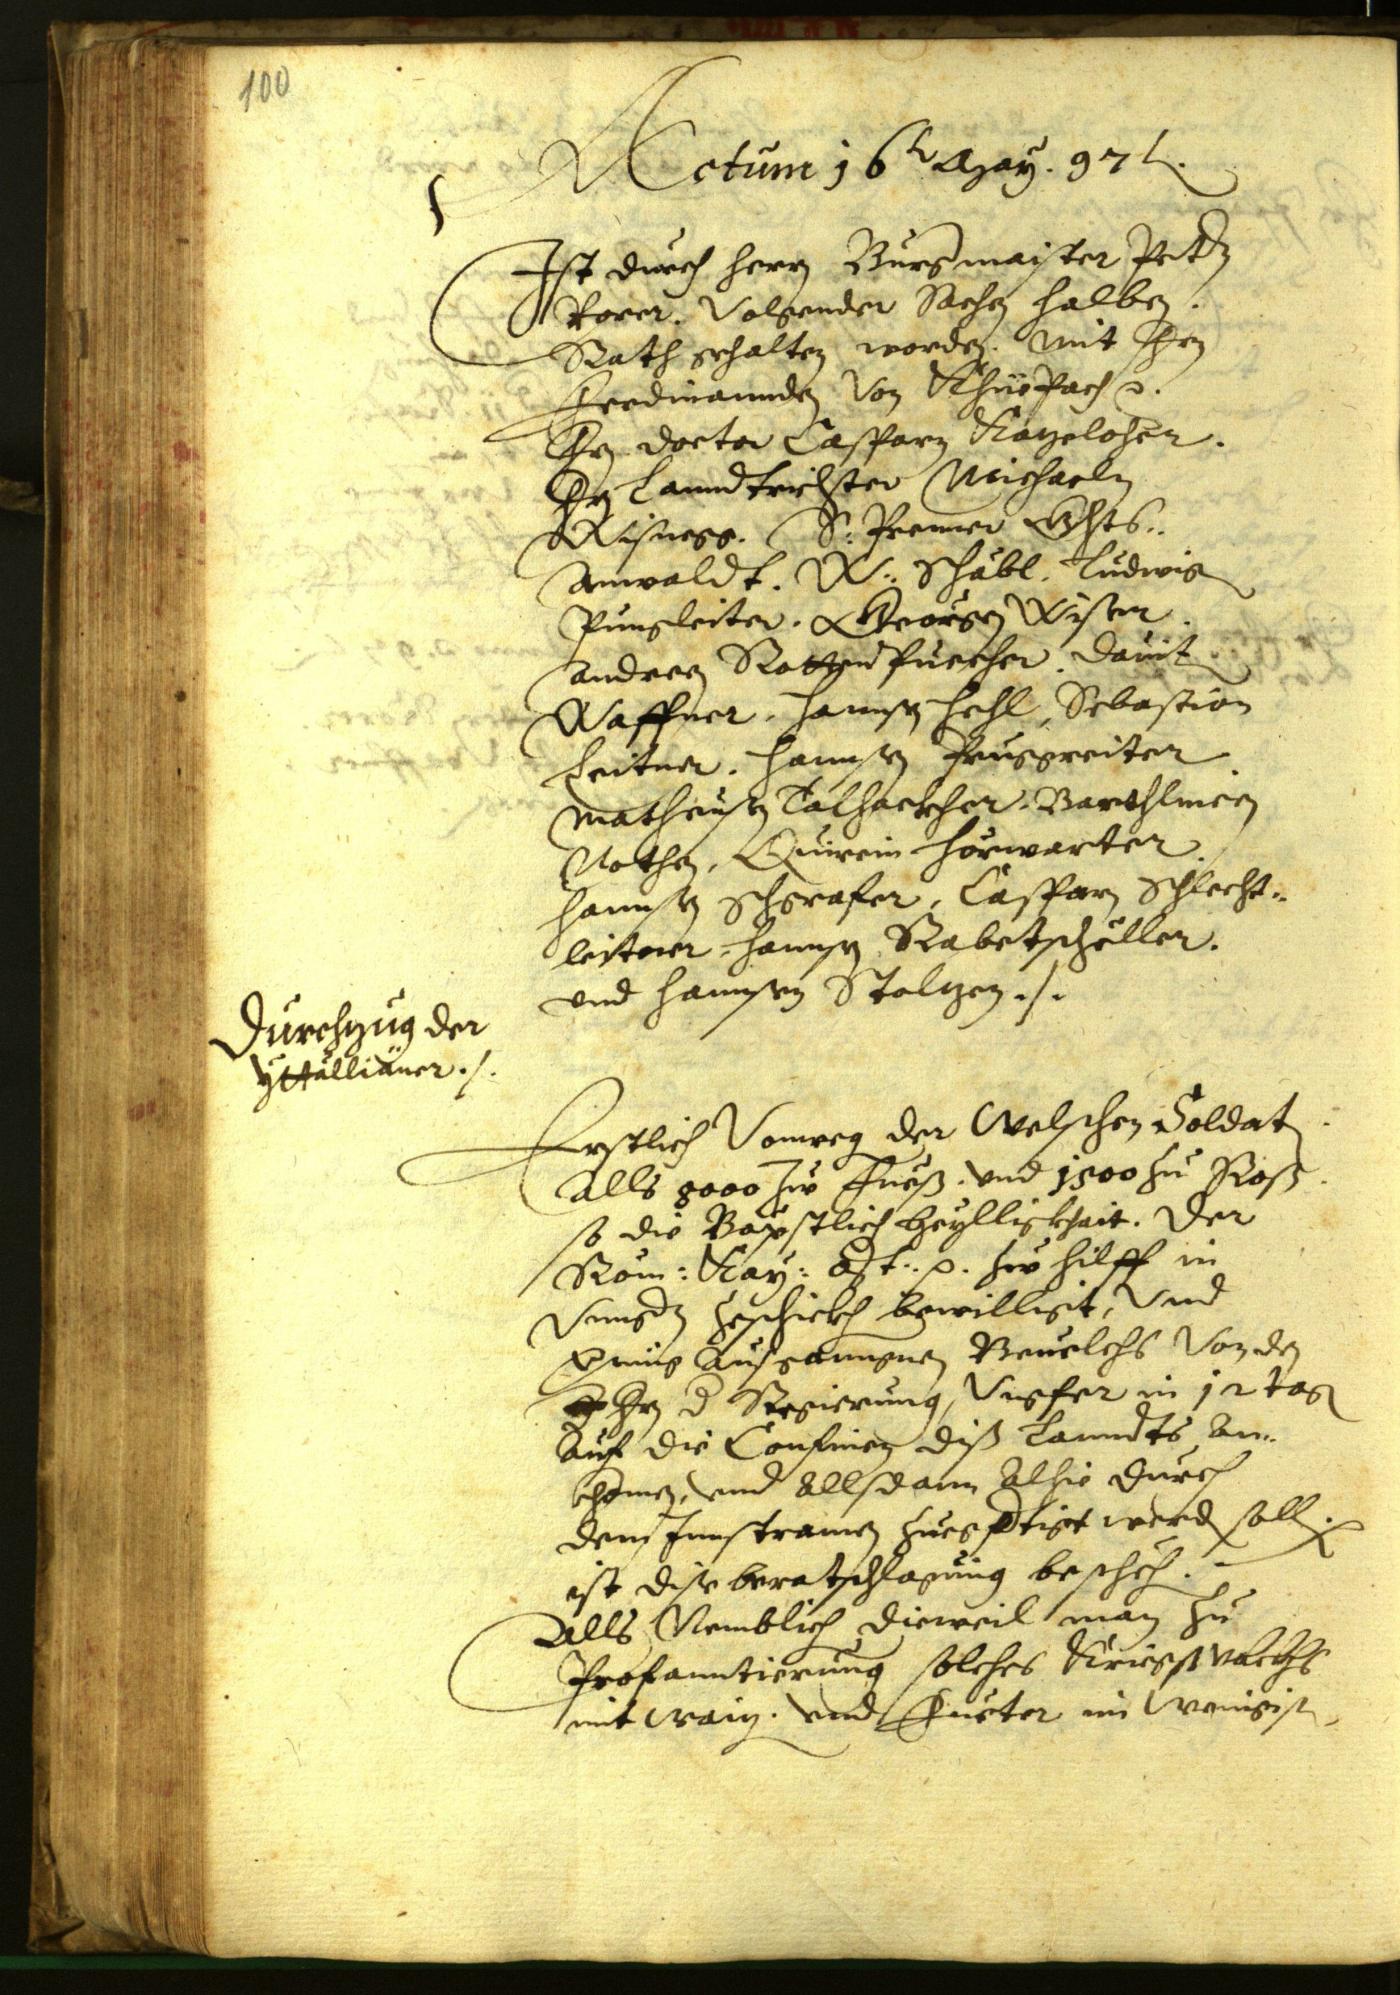 100
Actum 16 May. 97
Ist durch Herrn Burgmaister
Rorer. Volgender Sachen halben.
Rath gehalten worden. Mit Hrn
Ferdinannden Von Khüepach
Hrn doctor Casparn Kazeloher.
Hrn Lanndtrichter Michaeln
S: Prenner
Anwaldt. W: Schäbl. Ludwig
Pungleiter. Georgen Wiser.
Andreen Rottenpuecher. Dauit
Waffner. Hannsen Hechl, Sebastian
Leitner. Hannsen Prugreiter
Matheusen Talhackher. Barthlmeen
Nothen, Quirein Hörwarter
Hannsen Schgrafer, Casparn Schlecht-
leitner. Hannsen Rabetschäller.
und Hannsen Stolzen ./.
Durchzug der
Ytälliäner ./.
Erstlich Vonweg der Welschen Soldaten
Alls 8000 zu Fueß. und 1500 zu Roß
so die Bäpstlich Heylligkhait. Der
Röm: Kay: Mt: zu hilff in
Vngern zeschickh bewilligit, Vnd
ausganngnen Beuelchs Von den
Hrn d Regierung, Vngfer in 12 tag
auf die Confinen diß Lanndts an-
khomen, und Allsdann Alhie durch
den Innstramen werden soll.
ist dise beratschlagung beschech. -
Alls Nemblich dieweil man zu
Profanntierung solches Kriegßvolckhs
mit Wein. und Fueter im Wenigist